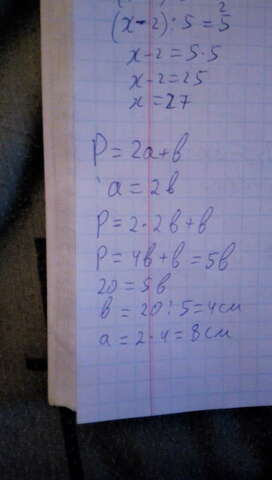 (x-2):5=5
x-2=5·5
x-2=25
x=27
P=2a+b
a=2b
P=2·2b+b
P=4b+b=5b
20=5b
b=20:5=4см
a=2·4=8см